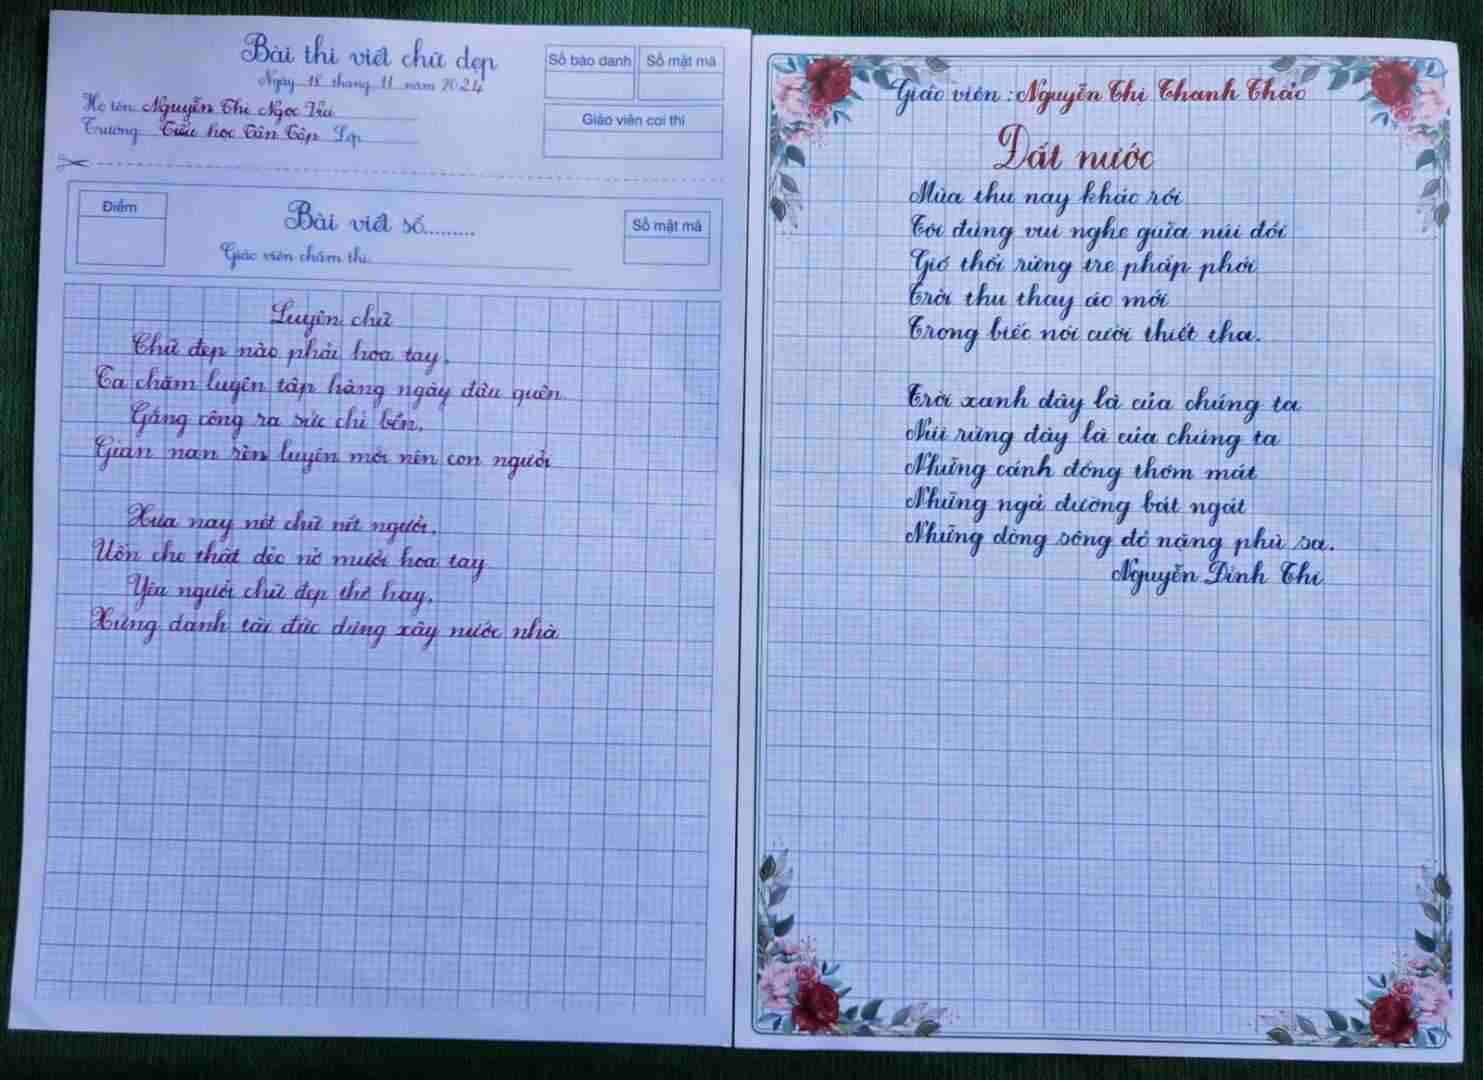 Bài thi viết chữ đẹp
Ngày 18 tháng 11 năm 2024
Họ tên Nguyễn Thị Ngọc
Trường Tiểu học Tân Tập Lớp
Số báo danh
Số mật mã
Giáo viên coi thi
Điểm
Bài viết số.........
Giáo viên chấm thi
Số mật mã
Luyện chữ
Chữ đẹp nào phải hoa tay,
Ta chăm luyện tập hàng ngày đâu quên
Gắng công ra sức chí bền,
Gian nan rèn luyện mới nên con người
Xưa nay nét chữ nết người,
Uốn cho thật dẻo nở mười hoa tay
Yêu người chữ đẹp thế hay,
Xứng danh tài đức dựng xây nước nhà
Giáo viên : Nguyễn Thị Thanh Thảo
Đất nước
Mùa thu nay khác rồi
Tôi đứng vui nghe giữa núi đồi
Gió thổi rừng tre phấp phới
Trời thu thay áo mới
Trong biếc nói cười thiết tha.
Trời xanh đây là của chúng ta
Núi rừng đây là của chúng ta
Những cánh đồng thơm mát
Những ngả đường bát ngát
Những dòng sông đỏ nặng phù sa.
Nguyễn Đình Thi